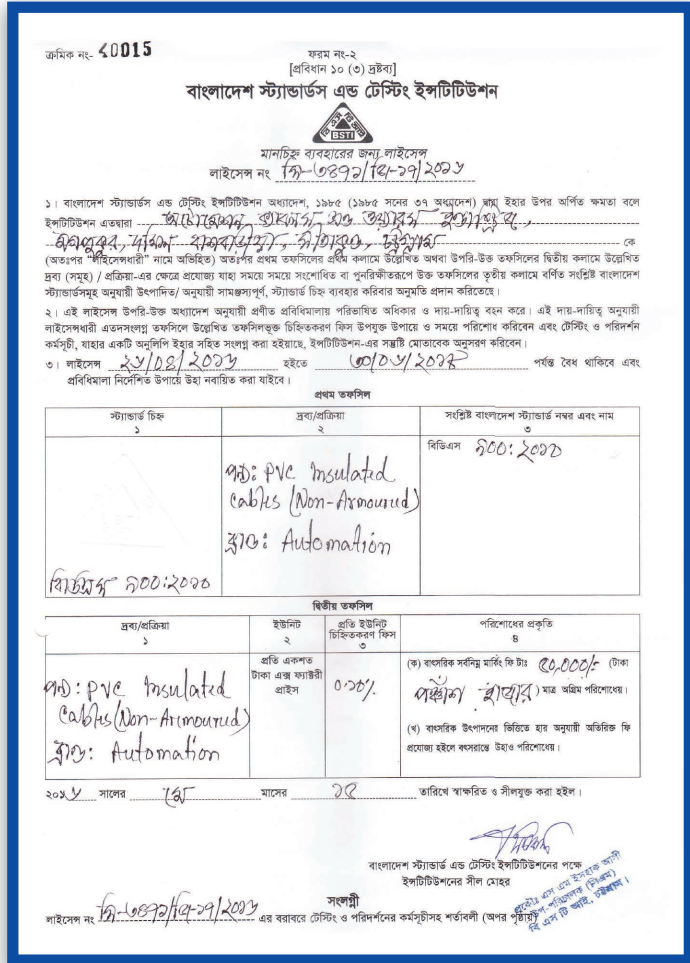 ক্রমিক নং- 40015
ফরম নং-২
[প্রবিধান ১০ (৩) দ্রষ্টব্য]
বাংলাদেশ স্ট্যান্ডার্ডস এন্ড টেস্টিং ইন্সটিটিউশন
বি এস টি আই
BSTI
মানচিহ্ন ব্যবহারের জন্য লাইসেন্স
লাইসেন্স নং
১। বাংলাদেশ স্ট্যান্ডার্ডস এন্ড টেস্টিং ইন্সটিটিউশন অধ্যাদেশ, ১৯৮৫ (১৯৮৫ সনের ৩৭ অধ্যাদেশ) দ্বারা ইহার উপর অর্পিত ক্ষমতা বলে
ইন্সটিটিউশন এতদ্বারা অটোমেশন ক্যাবলস
দক্ষিণ সীতাকুন্ড, চট্টগ্রাম কে
(অতঃপর "লাইসেন্সধারী" নামে অভিহিত) অতঃপর প্রথম তফসিলের প্রথম কলামে উল্লেখিত অথবা উপরি-উক্ত তফসিলের দ্বিতীয় কলামে উল্লেখিত
দ্রব্য (সমূহ) / প্রক্রিয়া-এর ক্ষেত্রে প্রযোজ্য যাহা সময়ে সময়ে সংশোধিত বা পুনরিক্ষীতরূপে উক্ত তফসিলের তৃতীয় কলামে বর্ণিত সংশ্লিষ্ট বাংলাদেশ
স্ট্যান্ডার্ডসমূহ অনুযায়ী উৎপাদিত/ অনুযায়ী সামঞ্জস্যপূর্ণ, স্ট্যান্ডার্ড চিহ্ন ব্যবহার করিবার অনুমতি প্রদান করিতেছে।
২। এই লাইসেন্স উপরি-উক্ত অধ্যাদেশ অনুযায়ী প্রণীত প্রবিধিমালায় পরিভাষিত অধিকার ও দায়-দায়িত্ব বহন করে। এই দায়-দায়িত্ব অনুযায়ী
লাইসেন্সধারী এতদসংলগ্ন তফসিলে উল্লেখিত তফসিলভূক্ত চিহ্নিতকরণ ফিস উপযুক্ত উপায়ে ও সময়ে পরিশোধ করিবেন এবং টেস্টিং ও পরিদর্শন
কর্মসূচী, যাহার একটি অনুলিপি ইহার সহিত সংলগ্ন করা হইয়াছে, ইন্সটিটিউশন-এর সন্তুষ্টি মোতাবেক অনুসরণ করিবেন।
৩। লাইসেন্স হইতে পর্যন্ত বৈধ থাকিবে এবং
প্রবিধিমালা নির্দেশিত উপায়ে উহা নবায়িত করা যাইবে।
প্রথম তফসিল
স্ট্যান্ডার্ড চিহ্ন
১
দ্রব্য/প্রক্রিয়া
২
সংশ্লিষ্ট বাংলাদেশ স্ট্যান্ডার্ড নম্বর এবং নাম
৩
বিডিএস ৯০০:২০১০
পন্য: PVC Insulated
Cables (Non-Armoured)
ব্রান্ড: Automation
বিডিএস ৯০০:২০১০
দ্বিতীয় তফসিল
দ্রব্য/প্রক্রিয়া
১
ইউনিট
২
প্রতি ইউনিট
চিহ্নিতকরণ ফিস
৩
পরিশোধের প্রকৃতি
৪
পন্য: PVC Insulated
Cables (Non-Armoured)
ব্রান্ড: Automation
প্রতি একশত
টাকা এক্স ফ্যাক্টরী
প্রাইস
০.১০%
(ক) বাৎসরিক সর্বনিম্ন মার্কিং ফি টাঃ ৫০,০০০/= (টাকা
পঞ্চাশ হাজার) মাত্র অগ্রিম পরিশোধেয়।
(খ) বাৎসরিক উৎপাদনের ভিত্তিতে হার অনুযায়ী অতিরিক্ত ফি
প্রযোজ্য হইলে বৎসরান্তে উহাও পরিশোধেয়।
২০১৬ সালের মে মাসের ১৫ তারিখে স্বাক্ষরিত ও সীলযুক্ত করা হইল।
বাংলাদেশ স্ট্যান্ডার্ড এন্ড টেস্টিং ইন্সটিটিউশনের পক্ষে
ইন্সটিটিউশনের সীল মোহর
প্রকৌঃ এস এম ইসহাক আলী
উপ-পরিচালক (সিএম)
বি এস টি আই, চট্টগ্রাম।
সংলগ্নী
লাইসেন্স নং এর বরাবরে টেস্টিং ও পরিদর্শনের কর্মসূচীসহ শর্তাবলী (অপর পৃষ্ঠায়)